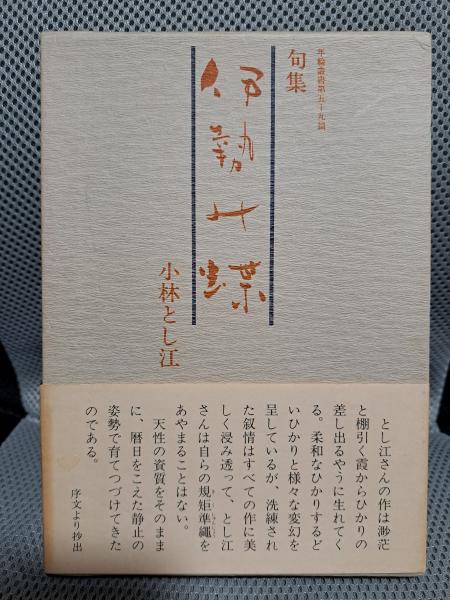 年輪叢書第五十九篇
句集
伊勢の蝶
小林とし江
とし江さんの作は渺茫
と棚引く霞からひかりの
差し出るやうに生れてく
る。柔和なひかりするど
いひかりと様々な変幻を
呈しているが、洗練され
た叙情はすべての作に美
しく浸み透って、とし江
さんは自らの規矩準縄を
あやまることはない。
天性の資質をそのまま
に、暦日をこえた静止の
姿勢で育てつづけてきた
のである。
序文より抄出